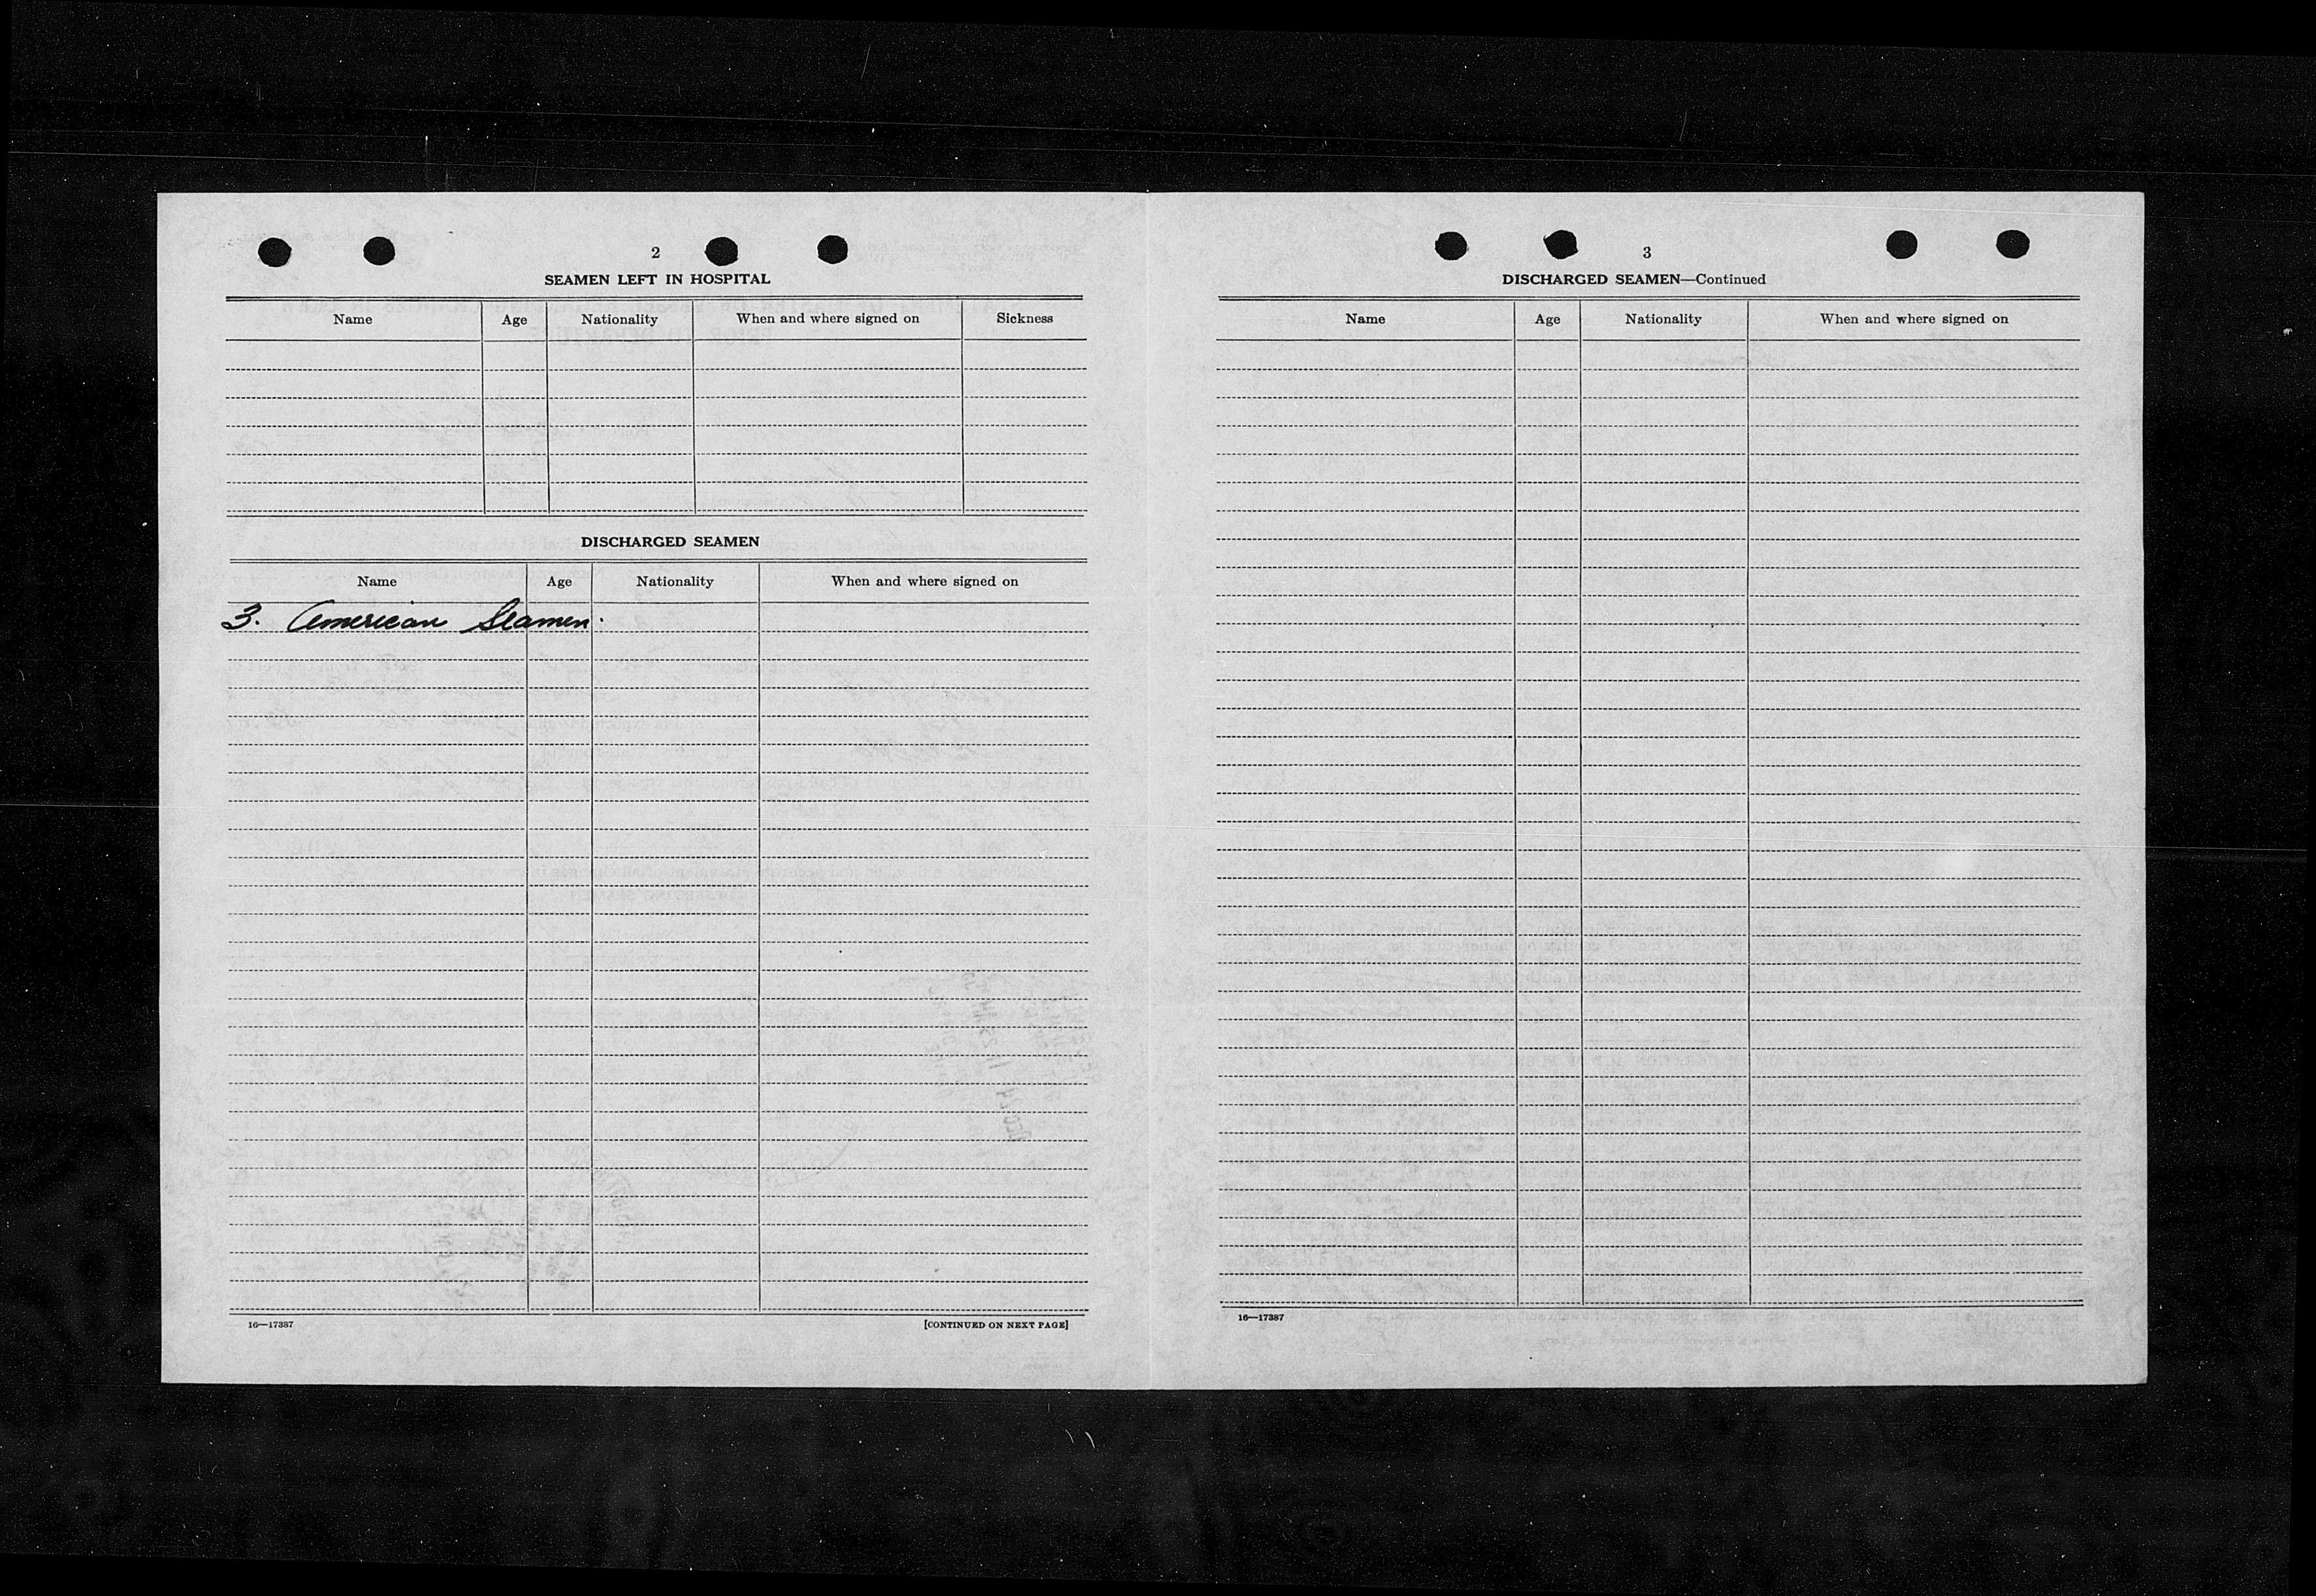 2
SEAMEN LEFT IN HOSPITAL
Name Age Nationality When and where signed on Sickness
DISCHARGED SEAMEN
Name Age Nationality When and where signed on
3. American Seamen.
16—17387 [CONTINUED ON NEXT PAGE]
3
DISCHARGED SEAMEN—Continued
Name Age Nationality When and where signed on
16—17387